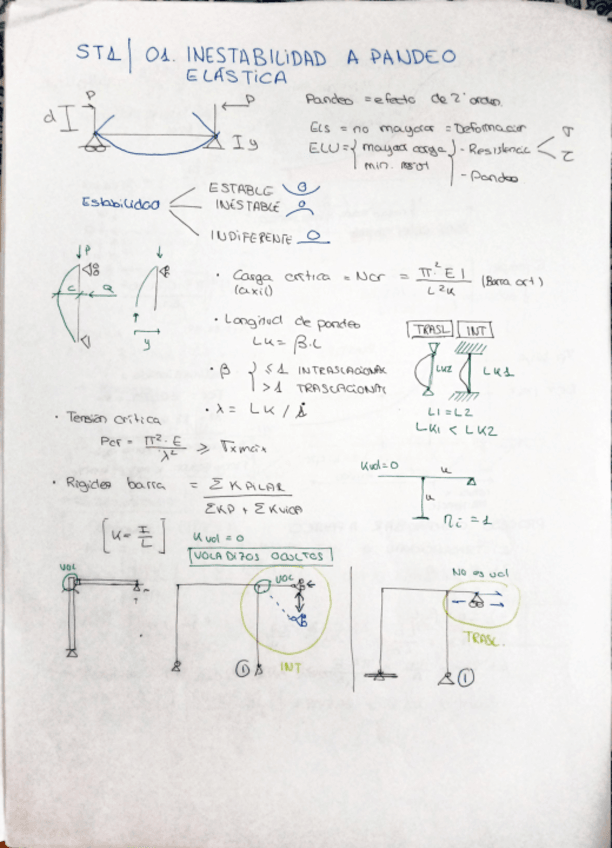 ST1 | 01. INESTABILIDAD A PANDEO
ELÁSTICA
P
P
d
y
Pandeo = efecto de 2º orden.
ELS = no mayorar = Deformación
ELU = { mayorar carga } - Resistencia < σ
τ
- Pandeo
Estabilidad
ESTABLE
INESTABLE
INDIFERENTE
P
C
Q
P
y
· Carga crítica = Ncr = π² E I / L²k (Barra art)
(axil)
· Longitud de pandeo
LK = β·L
TRASL INT
LK2
LK1
L1 = L2
LK1 < LK2
· β { ≤ 1 INTRASLACIONAL
> 1 TRASLACIONAL
· λ = LK / i
· Tensión crítica
Pcr = π²·E / λ² ≥ σxmáx
· Rigidez barra = Σ KPILAR / ΣKP + ΣKVIGA
[K = I / L]
Kvol = 0
K
K
ηi = 1
Kvol = 0
VOLADIZOS OCULTOS
VOL
VOL
1
INT
No es vol
TRASL.
1